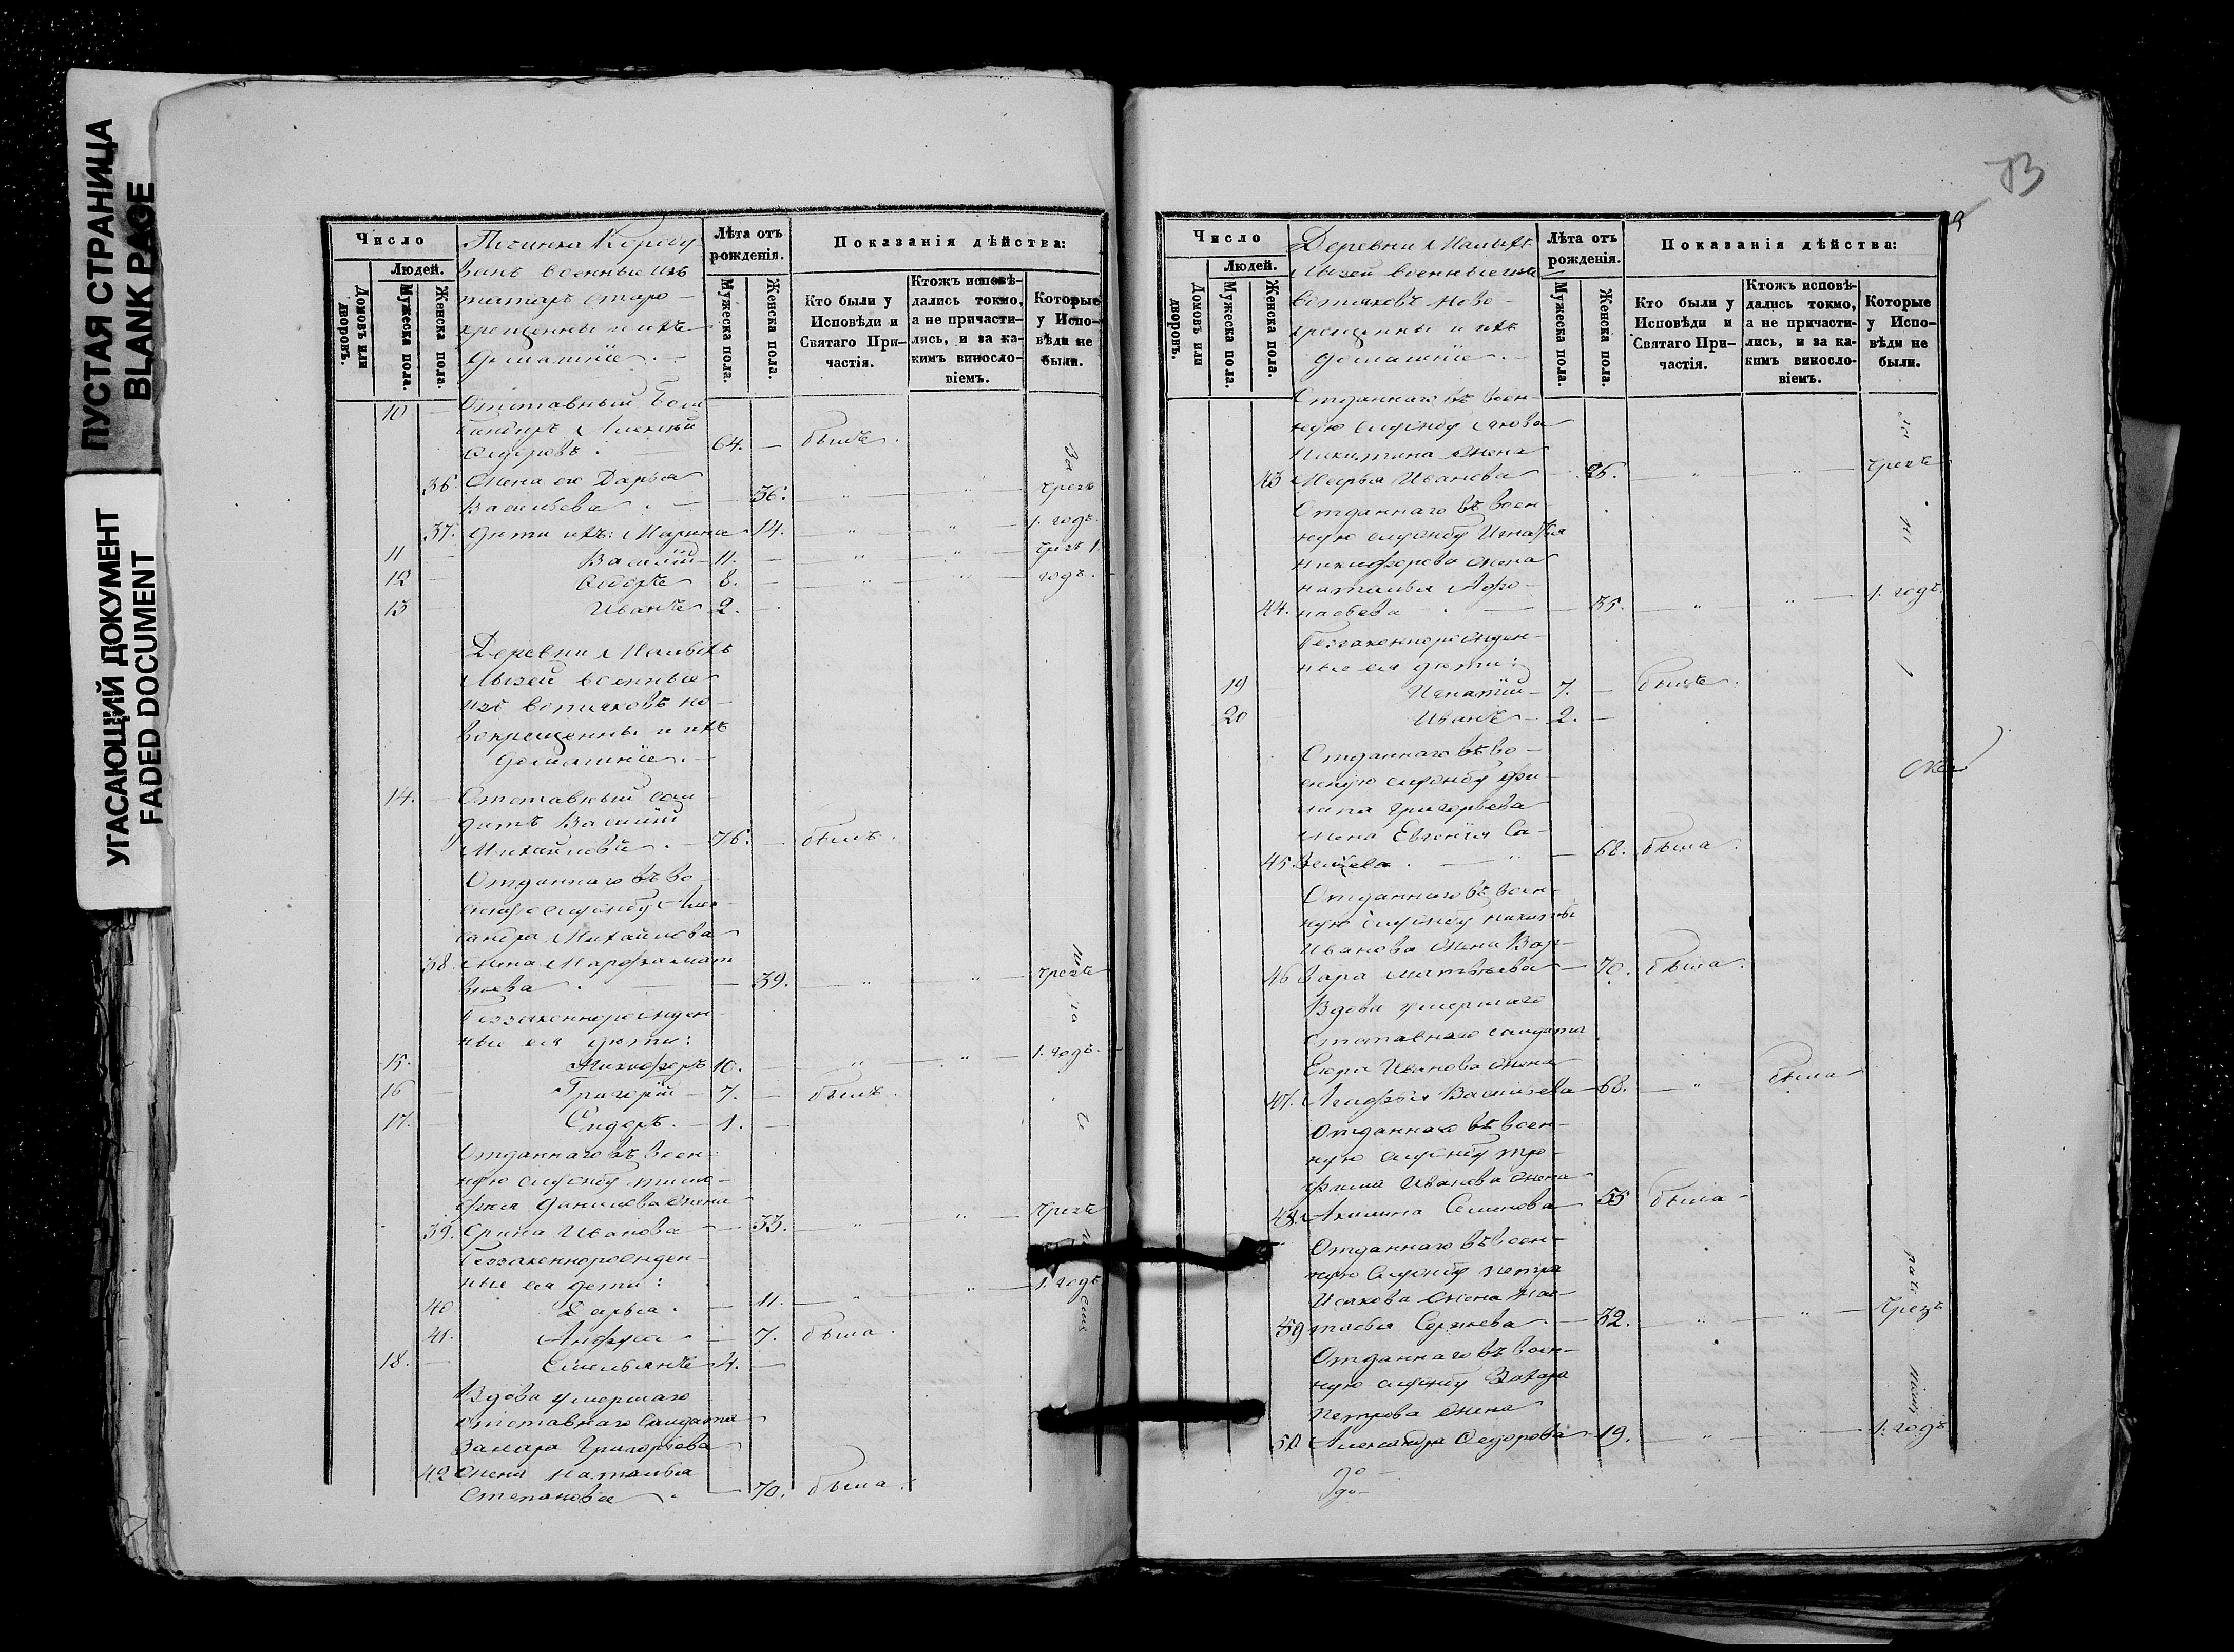 ПУСТАЯ СТРАНИЦА
BLANK PAGE
УГАСАЮЩИЙ ДОКУМЕНТ
FADED DOCUMENT
Число
Людей.
Домовъ или дворовъ.
Мужеска пола.
Женска пола.
Починка
военные изъ
татаръ старо-
крещенны и ихъ
домашніе.
Лѣта отъ рожденія.
Мужеска пола.
Женска пола.
Показанія дѣйства:
Кто были у Исповѣди и Святаго При-частія.
Ктожъ исповѣ-дались токмо, а не причасти-лись, и за ка-кимъ винослo-віемъ.
Которые у Испо-вѣди не были.
10 Отставный бом-
бандиръ Алексѣй
Ѳедоровъ. 64. былъ
36. Жена его Дарья
Васильева 56. " " чрезъ
37. дѣти ихъ: Марина 14. " " 1. годъ.
11 Василій 11. " " чрезъ 1.
12 Ѳедоръ 8. " " годъ.
13 Иванъ 2.
Деревни Малыхъ
Лызей военные
изъ вотяковъ но-
вокрещенны и ихъ
домашніе.
14. Отставный сол-
датъ Василій
Михайловъ. 76. былъ.
Отданнаго въ во-
енную службу Алек-
сандра Михайлова
38. жена Марфа Мат-
вѣева 39. " " чрезъ
беззаконнорожден-
ные ея дѣти:
15. Никифоръ 10. " " 1. годъ.
16 Григорій 7. былъ.
17. Сидоръ. 1.
Отданнаго въ воен-
ную службу Тимо-
фея Данилова жена
39. Ирина Иванова 33. " " чрезъ
беззаконнорожден-
ные ея дети:
40 Дарья. 11. " " 1. годъ
41. 7. была.
18. Емельянъ 4.
Вдова умершаго
отставнаго солдата
Григорьева
42 жена Наталья
Степанова. 70. была.
73
9
Число
Людей.
Домовъ или дворовъ.
Мужеска пола.
Женска пола.
Деревни Малыхъ
Лызей военные изъ
вотяковъ ново-
крещенны и ихъ
домашніе.
Лѣта отъ рожденія.
Мужеска пола.
Женска пола.
Показанія дѣйства:
Кто были у Исповѣди и Святаго При-частія.
Ктожъ исповѣ-дались токмо, а не причасти-лись, и за ка-кимъ винослo-віемъ.
Которые у Испо-вѣди не были.
Отданнаго въ воен-
ную службу Якова
Никитина жена
43 Марья Иванова 26. " " чрезъ
Отданнаго въ воен-
ную службу Игнатія
Никифорова жена
Наталья Афо-
44. насьева 35. " " 1. годъ.
беззаконнорожден-
ные ея дѣти:
19 Игнатій 7. былъ.
20 Иванъ 2.
Отданнаго въ во-
енную службу Фи-
липа Григорьева
жена Евгенія Са-
45. вельева. 68. была.
Отданнаго въ воен-
ную службу Никиты
Иванова жена Вар-
46 вара Матвѣева 70. была.
Вдова умершаго
отставнаго солдата
Егора Иванова жена
47. Агафья Васильева 68. " была
Отданнаго въ воен-
ную службу Тро-
фима Иванова жена
48. Акилина Семенова 55 была
Отданнаго въ воен-
ную службу Петра
Исакова жена Нас-
тасья Сергѣева 32. " " чрезъ
Отданнаго въ воен-
ную службу Захара
Петрова жена
50 Александра Ѳедорова 19. " " 1. годъ